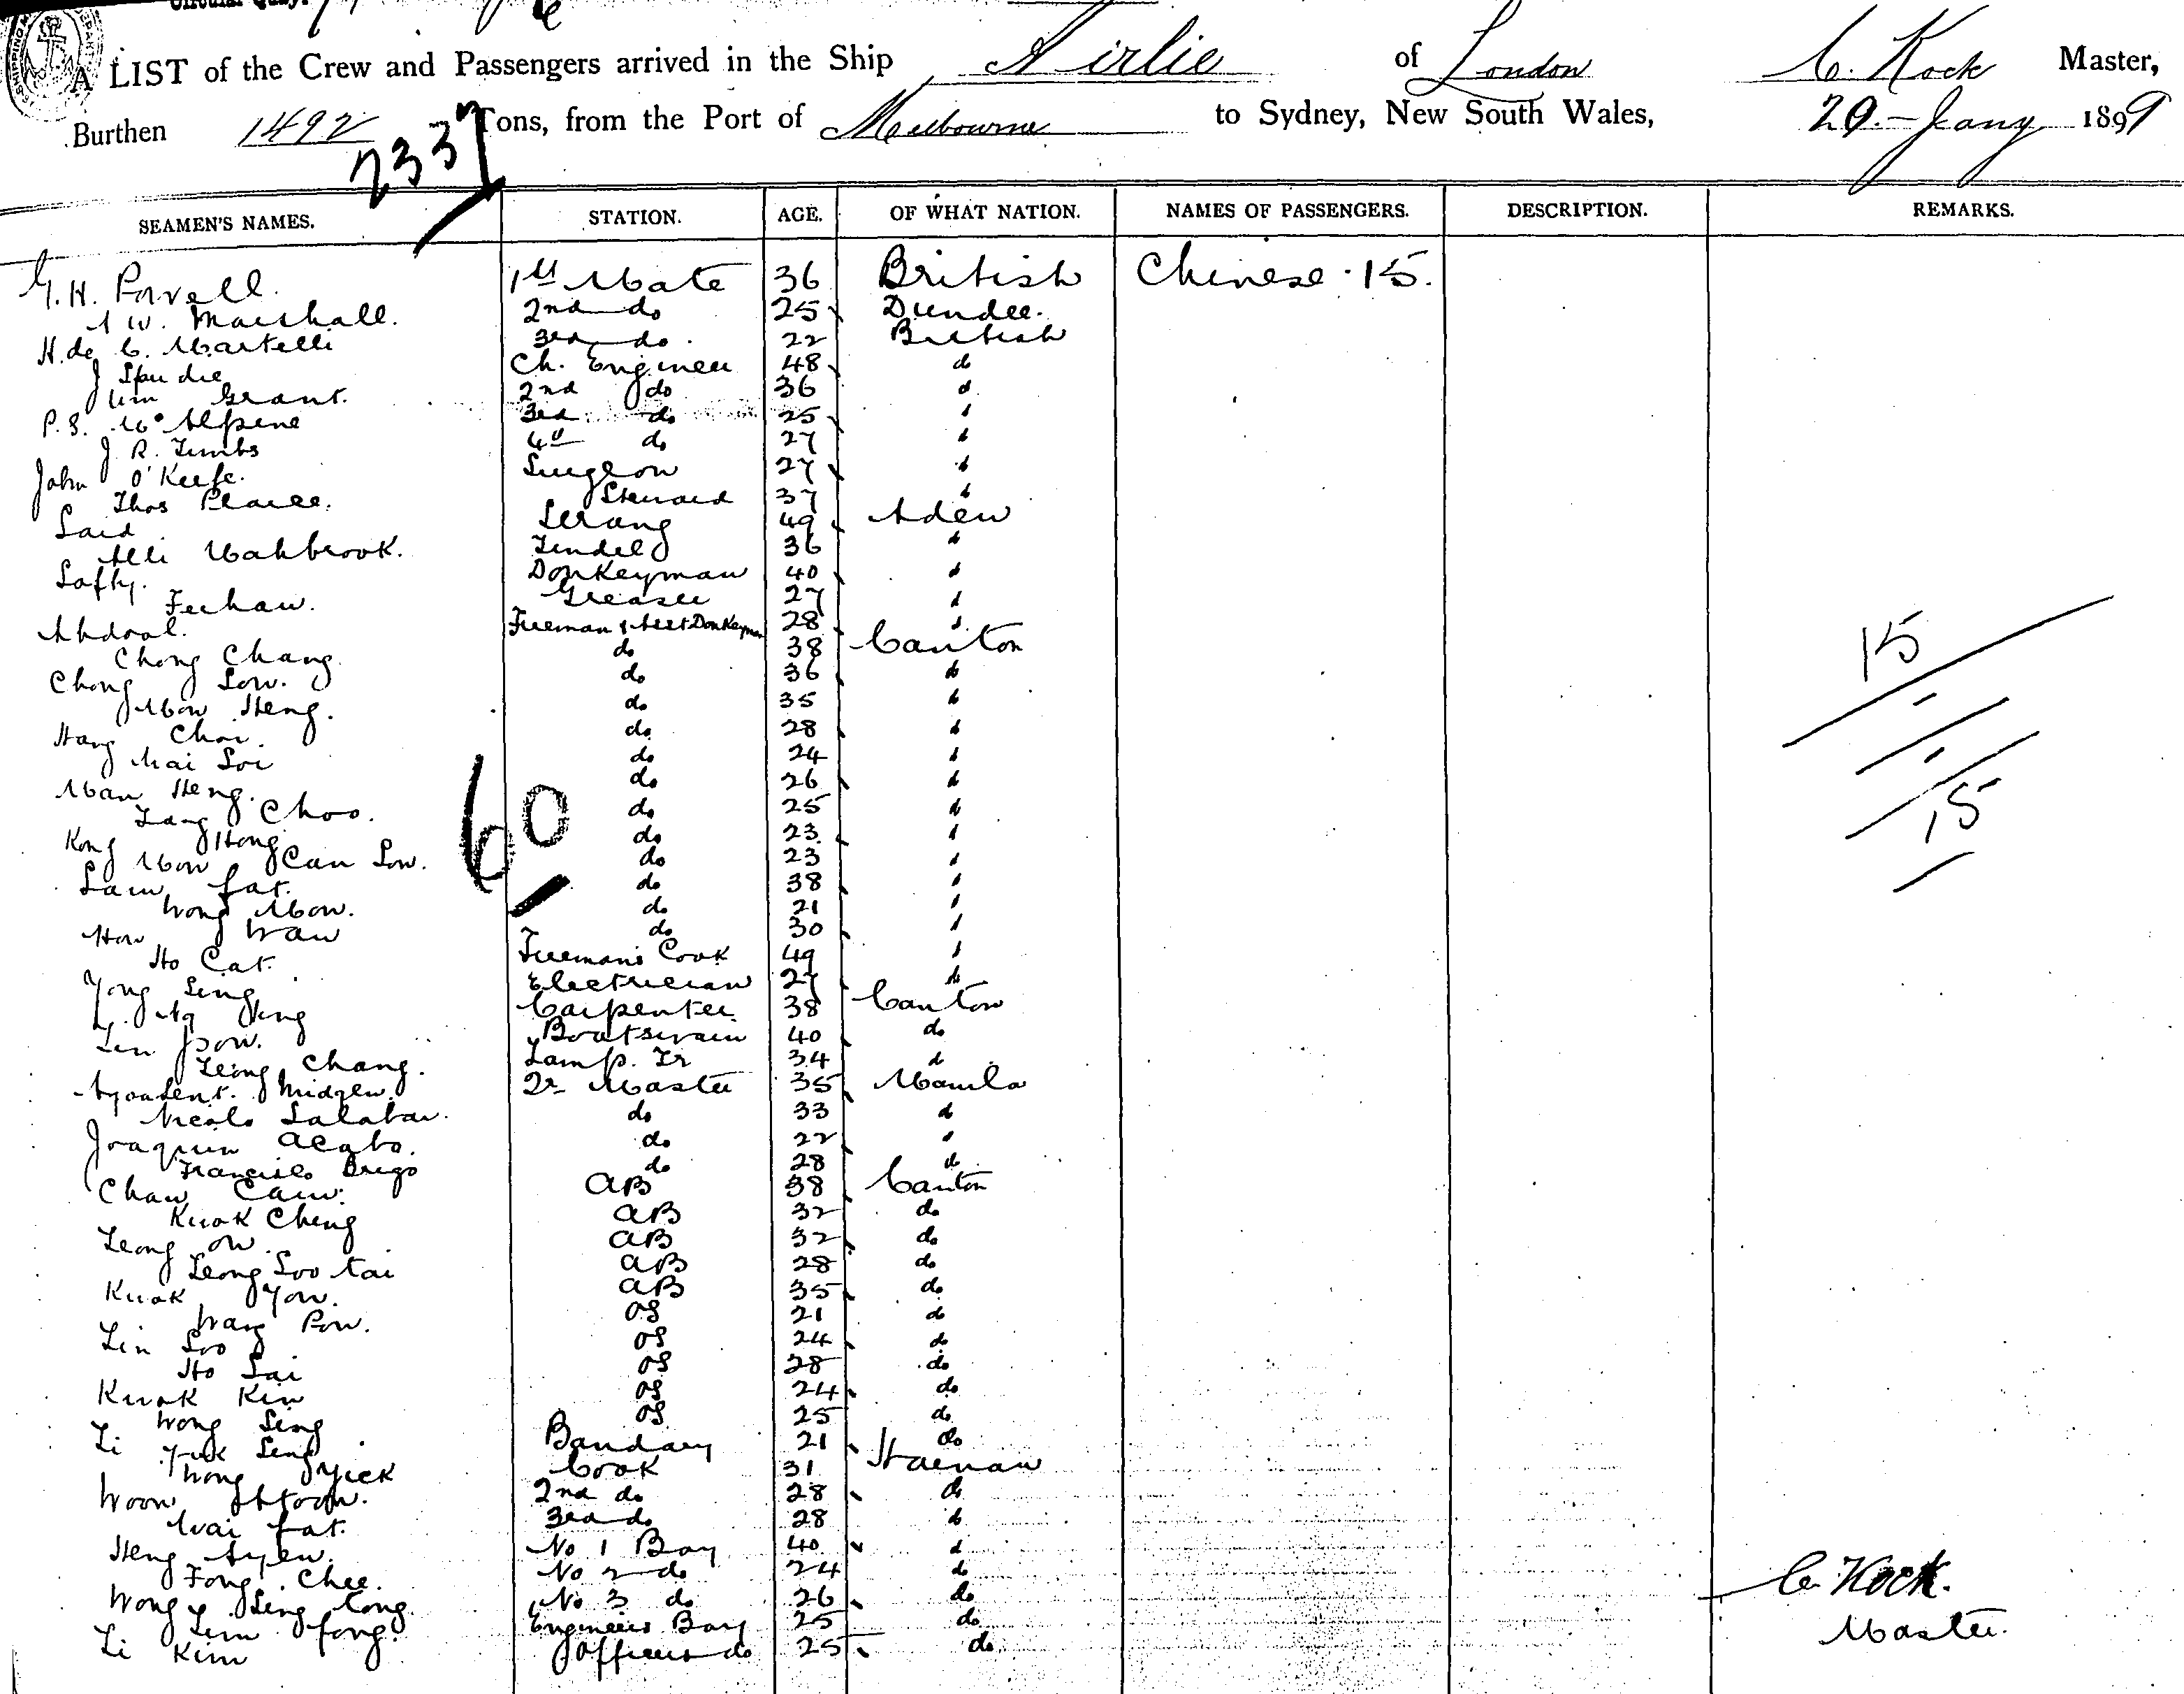 Circular Quay,
A LIST of the Crew and Passengers arrived in the Ship Airlie of London C. Kock Master,
Burthen 1492 Tons, from the Port of Melbourne to Sydney, New South Wales, 29 - Jany 1899
2337
SEAMEN'S NAMES. STATION. AGE. OF WHAT NATION. NAMES OF PASSENGERS. DESCRIPTION. REMARKS.
G. H. Powell. 1st Mate 36 British Chinese . 15.
A W. Marshall. 2nd do 25 Dundee.
H. de C. Martelli 3rd do 22 British
J 48 Ch. Engineer do
Wm Grant. 2nd do 36 "
P. S. McAlpine 3rd do 25 "
J. R. Timbs 4th do 27 "
John O'Keefe. Surgeon 27 "
Thos Pearce. Steward 37 "
Said Serang 49 Aden
Alli Mahbrook. Tindel 36 "
Safty. Donkeyman 40 "
Feehan. Greaser 27 "
Abdool. Fireman & Asst Donkeyman 28 "
Chong Chang. do 38 Canton
Chong Low. do 36 "
Mow Heng. do 35 "
Hang Choi. do 28 "
Mai Loi do 24 "
Man Heng. do 26 "
Tang Choo. do 25 "
Kong Hong do 23 "
Mow Can Low. do 23 "
Lam fat. do 38 "
Wong Mow. do 21 "
How Wan do 30 "
Ho Cat. Fireman's Cook 49 "
Yong Sing Electrician 27 "
Carpenter 38 Canton
Boatswain 40 do
Leong Chang. Lamp. Tr 34 "
Qr Master 35 Manila
Nicolo Salabar. do 33 "
Joaquin Acabo. do 22 "
Francisco do 28 do
Chaw Cam. AB 38 Canton
Kwok Cheng AB 32 do
Leong On. AB 32 do
Leong Soo tai AB 28 do
Kwok Yow. AB 35 do
Wang Pow. OS 21 do
Lin Soo OS 24 do
Ho Sai OS 28 do
Kwok Kin OS 24 do
Wong Seng OS 25 do
Li Yuk Seng Bandary 21 do
Wong Yick Cook 31 Haenan
Woon 2nd do 28 do
Wai fat. 3rd do 28 "
Heng Ayew. No 1 Boy 40 "
Fong Chee. No 2 do 24 do
Wong Seng Cong. No 3 do 26 do
Lim fong. Engineers Boy 25 do
Li Kim Officers do 25 do
60
15
15
C. Kock.
Master.